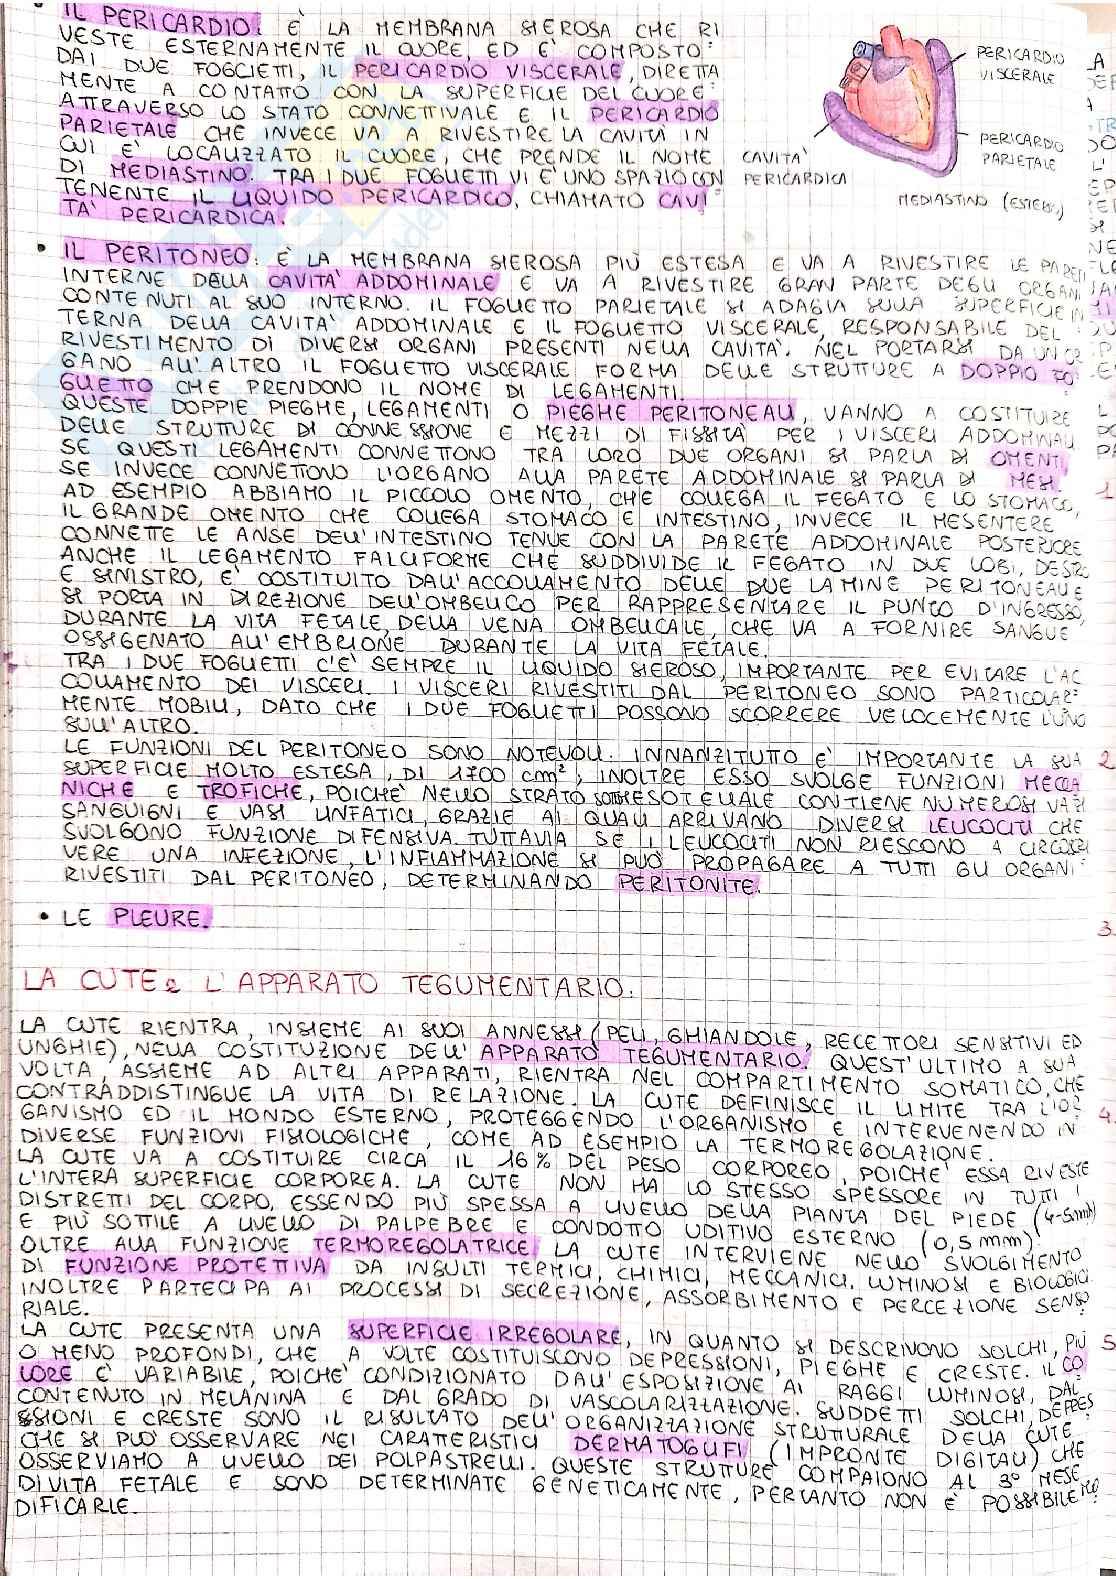 IL PERICARDIO: È LA MEMBRANA SIEROSA CHE RI
VESTE ESTERNAMENTE IL CUORE, ED E' COMPOSTO
DAI DUE FOGLIETTI, IL PERICARDIO VISCERALE, DIRETTA
MENTE A CONTATTO CON LA SUPERFICIE DEL CUORE
ATTRAVERSO LO STATO CONNETTIVALE E IL PERICARDIO
PARIETALE CHE INVECE VA A RIVESTIRE LA CAVITÀ IN
CUI E' LOCALIZZATO IL CUORE, CHE PRENDE IL NOME
DI MEDIASTINO. TRA I DUE FOGLIETTI VI E' UNO SPAZIO CON
TENENTE IL LIQUIDO PERICARDICO, CHIAMATO CAVI
TA' PERICARDICA.
PERICARDIO
VISCERALE
PERICARDIO
PARIETALE
CAVITA'
PERICARDICA
MEDIASTINO
• IL PERITONEO: È LA MEMBRANA SIEROSA PIÙ ESTESA E VA A RIVESTIRE LE PARETI
INTERNE DELLA CAVITA' ADDOMINALE E VA A RIVESTIRE GRAN PARTE DEGLI ORGANI
CONTENUTI AL SUO INTERNO. IL FOGLIETTO PARIETALE SI ADAGIA SULLA SUPERFICIE IN
TERNA DELLA CAVITA' ADDOMINALE E IL FOGLIETTO VISCERALE, RESPONSABILE DEL
RIVESTIMENTO DI DIVERSI ORGANI PRESENTI NELLA CAVITA'. NEL PORTARSI DA UN OR
GANO ALL'ALTRO IL FOGLIETTO VISCERALE FORMA DELLE STRUTTURE A DOPPIO FO
GLIETTO CHE PRENDONO IL NOME DI LEGAMENTI.
QUESTE DOPPIE PIEGHE, LEGAMENTI O PIEGHE PERITONEALI, VANNO A COSTITUIRE
DELLE STRUTTURE DI CONNESSIONE E MEZZI DI FISSITÀ PER I VISCERI ADDOMINALI
SE QUESTI LEGAMENTI CONNETTONO TRA LORO DUE ORGANI SI PARLA DI OMENTI,
SE INVECE CONNETTONO L'ORGANO ALLA PARETE ADDOMINALE SI PARLA DI MESI.
AD ESEMPIO ABBIAMO IL PICCOLO OMENTO, CHE COLLEGA IL FEGATO E LO STOMACO,
IL GRANDE OMENTO CHE COLLEGA STOMACO E INTESTINO, INVECE IL MESENTERE
CONNETTE LE ANSE DELL'INTESTINO TENUE CON LA PARETE ADDOMINALE POSTERIORE
ANCHE IL LEGAMENTO FALCIFORME CHE SUDDIVIDE IL FEGATO IN DUE LOBI, DESTRO
E SINISTRO, E' COSTITUITO DALL'ACCOLLAMENTO DELLE DUE LAMINE PERITONEALI E
SI PORTA IN DIREZIONE DELL'OMBELICO PER RAPPRESENTARE IL PUNTO D'INGRESSO,
DURANTE LA VITA FETALE, DELLA VENA OMBELICALE, CHE VA A FORNIRE SANGUE
OSSIGENATO ALL'EMBRIONE DURANTE LA VITA FETALE.
TRA I DUE FOGLIETTI C'E' SEMPRE IL LIQUIDO SIEROSO, IMPORTANTE PER EVITARE L'AC
COLLAMENTO DEI VISCERI. I VISCERI RIVESTITI DAL PERITONEO SONO PARTICOLAR
MENTE MOBILI, DATO CHE I DUE FOGLIETTI POSSONO SCORRERE VELOCEMENTE L'UNO
SULL'ALTRO.
LE FUNZIONI DEL PERITONEO SONO NOTEVOLI. INNANZITUTTO E' IMPORTANTE LA SUA
SUPERFICIE MOLTO ESTESA, DI 1700 cm², INOLTRE ESSO SVOLGE FUNZIONI MECCA
NICHE E TROFICHE, POICHE' NELLO STRATO SOTTOMESOTELIALE CONTIENE NUMEROSI VASI
SANGUIGNI E VASI LINFATICI, GRAZIE AI QUALI ARRIVANO DIVERSI LEUCOCITI CHE
SVOLGONO FUNZIONE DIFENSIVA. TUTTAVIA SE I LEUCOCITI NON RIESCONO A CIRCOSCRI
VERE UNA INFEZIONE, L'INFIAMMAZIONE SI PUÒ PROPAGARE A TUTTI GLI ORGANI
RIVESTITI DAL PERITONEO, DETERMINANDO PERITONITE.
• LE PLEURE.
LA CUTE e L'APPARATO TEGUMENTARIO.
LA CUTE RIENTRA, INSIEME AI SUOI ANNESSI (PELI, GHIANDOLE, RECETTORI SENSITIVI ED
UNGHIE), NELLA COSTITUZIONE DELL'APPARATO TEGUMENTARIO. QUEST'ULTIMO A SUA
VOLTA, ASSIEME AD ALTRI APPARATI, RIENTRA NEL COMPARTIMENTO SOMATICO, CHE
CONTRADDISTINGUE LA VITA DI RELAZIONE. LA CUTE DEFINISCE IL LIMITE TRA L'OR
GANISMO ED IL MONDO ESTERNO, PROTEGGENDO L'ORGANISMO E INTERVENENDO IN
DIVERSE FUNZIONI FISIOLOGICHE, COME AD ESEMPIO LA TERMOREGOLAZIONE.
LA CUTE VA A COSTITUIRE CIRCA IL 16% DEL PESO CORPOREO, POICHE' ESSA RIVESTE
L'INTERA SUPERFICIE CORPOREA. LA CUTE NON HA LO STESSO SPESSORE IN TUTTI I
DISTRETTI DEL CORPO, ESSENDO PIÙ SPESSA A LIVELLO DELLA PIANTA DEL PIEDE (4-5mm)
E PIÙ SOTTILE A LIVELLO DI PALPEBRE E CONDOTTO UDITIVO ESTERNO (0,5 mm).
OLTRE ALLA FUNZIONE TERMOREGOLATRICE, LA CUTE INTERVIENE NELLO SVOLGIMENTO
DI FUNZIONE PROTETTIVA DA INSULTI TERMICI, CHIMICI, MECCANICI, LUMINOSI E BIOLOGICI
INOLTRE PARTECIPA AI PROCESSI DI SECREZIONE, ASSORBIMENTO E PERCEZIONE SENSO
RIALE.
LA CUTE PRESENTA UNA SUPERFICIE IRREGOLARE, IN QUANTO SI DESCRIVONO SOLCHI, PIÙ
O MENO PROFONDI, CHE A VOLTE COSTITUISCONO DEPRESSIONI, PIEGHE E CRESTE. IL CO
LORE E' VARIABILE, POICHE' CONDIZIONATO DALL'ESPOSIZIONE AI RAGGI LUMINOSI, DAL
CONTENUTO IN MELANINA E DAL GRADO DI VASCOLARIZZAZIONE. SUDDETTI SOLCHI, DEPRES
SSIONI E CRESTE SONO IL RISULTATO DELL'ORGANIZZAZIONE STRUTTURALE DELLA CUTE
CHE SI PUO' OSSERVARE NEI CARATTERISTICI DERMATOGLIFI (IMPRONTE DIGITALI) CHE
OSSERVIAMO A LIVELLO DEI POLPASTRELLI. QUESTE STRUTTURE COMPAIONO AL 3° MESE
DI VITA FETALE E SONO DETERMINATE GENETICAMENTE, PERTANTO NON È POSSIBILE MO
DIFICARLE.
1
2
3.
4.
5